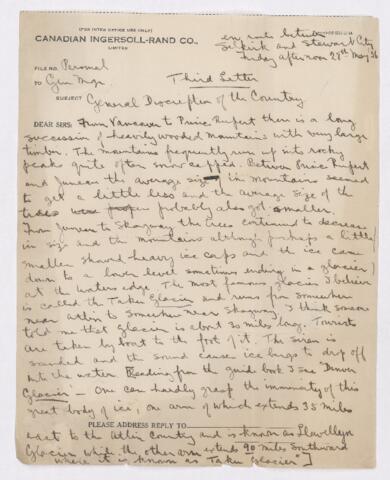 (FOR INTER OFFICE USE ONLY)
CANADIAN INGERSOLL-RAND CO.,
LIMITED
en route between
Selkirk and Stewart City
Friday afternoon 28th May 26
FILE NO. Personal
TO Gen Mgr.
Third Letter
SUBJECT General Discription of the Country
DEAR SIRS: From Vancouver to Prince Rupert there is a long
succession of heavily wooded mountains with very large
timber. The mountains frequently run up into rocky
peaks quite often snow capped. Between Prince Rupert
and Juneau the average size in mountains seemed
to get a little less and the average size of the
trees probably also got smaller.
From Juneau to Skagway the trees continued to decrease
in size and the mountains although perhaps a little
smaller showed heavy ice caps and the ice came
down to a lower level sometimes ending in a glacier
at the waters edge. The most famous glacier I believe
is called the Taku Glacier and runs from somewhere
near Atlin to somewhere near Skagway. I think someone
told me that Glacier is about 30 miles long. Tourists
are taken by boat to the foot of it. The siren is
sounded and the sound causes ice bergs to drop off
into the water. Reading from the guide book I see Denver
Glacier - One can hardly grasp the immensity of this
great body of ice, one arm of which extends 35 miles
PLEASE ADDRESS REPLY TO
east to the Atlin Country and is known as Llewellyn
Glacier while the other arm extends 90 miles Southward
where it is known as Taku Glacier]